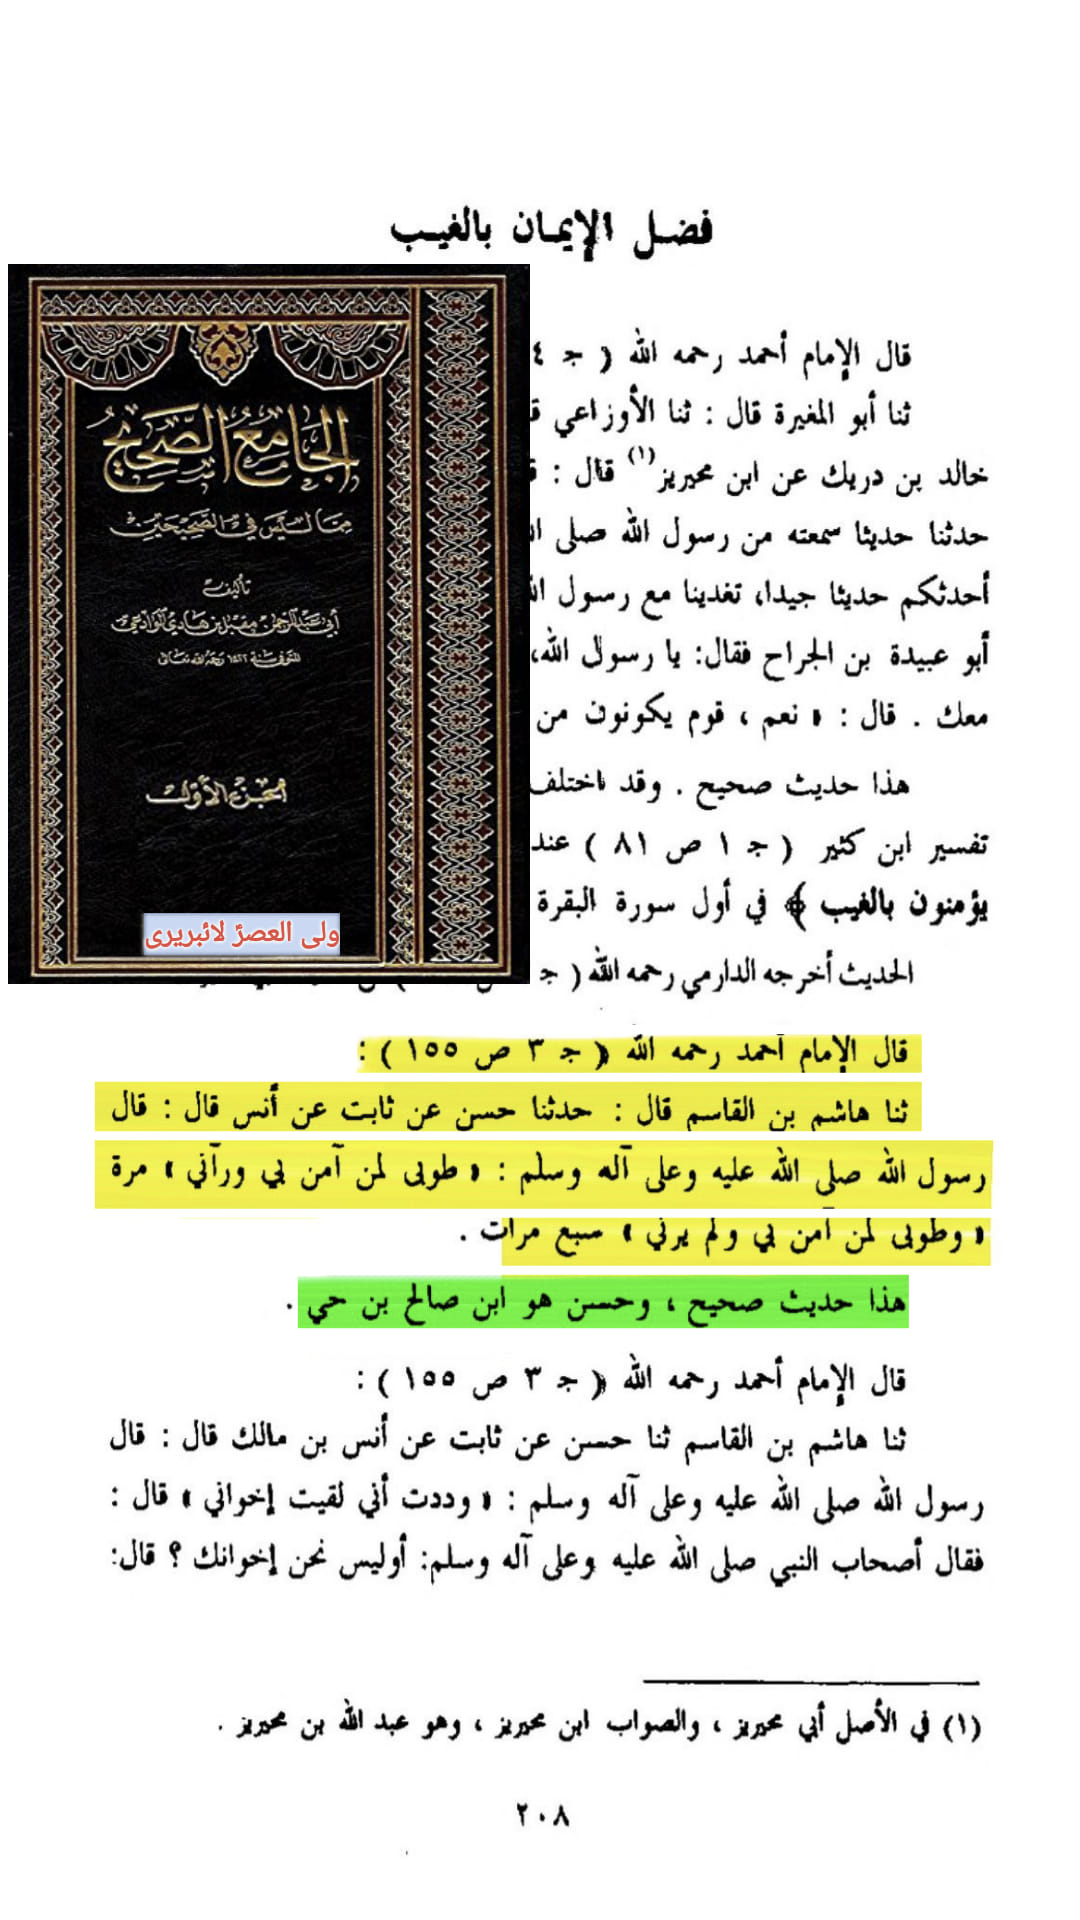 فضل الإيمان بالغيب
قال الإمام أحمد رحمه الله ( جـ ٤
ثنا أبو المغيرة قال : ثنا الأوزاعي
خالد بن دريك عن ابن محيريز(١) قال :
حدثنا حديثا سمعته من رسول الله صلى
أحدثكم حديثا جيدا، تغدينا مع رسول
أبو عبيدة بن الجراح فقال: يا رسول الله،
معك . قال : « نعم ، قوم يكونون من
هذا حديث صحيح . وقد اختلف
تفسير ابن كثير ( جـ ١ ص ٨١ ) عند
يؤمنون بالغيب ﴾ في أول سورة البقرة
الحديث أخرجه الدارمي رحمه الله ( جـ
الجامع الصحيح
مما ليس في الصحيحين
تأليف
أبي عبد الرحمن مقبل بن هادي الوادعي
المتوفى سنة ١٤٢٢ رحمه الله تعالى
الجزء الأول
ولی العصرؑ لائبریری
قال الإمام أحمد رحمه الله ( جـ ٣ ص ١٥٥ ) :
ثنا هاشم بن القاسم قال : حدثنا حسن عن ثابت عن أنس قال : قال
رسول الله صلى الله عليه وعلى آله وسلم : « طوبى لمن آمن بي ورآني » مرة
« وطوبى لمن آمن بي ولم يرني » سبع مرات .
هذا حديث صحيح ، وحسن هو ابن صالح بن حي .
قال الإمام أحمد رحمه الله ( جـ ٣ ص ١٥٥ ) :
ثنا هاشم بن القاسم ثنا حسن عن ثابت عن أنس بن مالك قال : قال
رسول الله صلى الله عليه وعلى آله وسلم : « وددت أني لقيت إخواني » قال :
فقال أصحاب النبي صلى الله عليه وعلى آله وسلم: أوليس نحن إخوانك ؟ قال:
(١) في الأصل أبي محيريز ، والصواب ابن محيريز ، وهو عبد الله بن محيريز .
٢٠٨